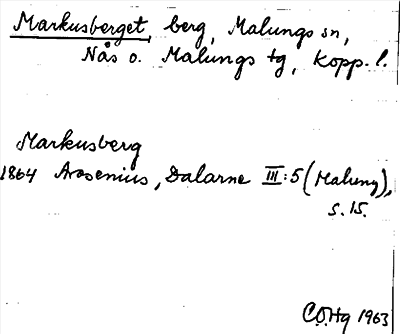 Markusberget, berg, Malungs sn,
Nås o. Malungs tg, Kopp. l.
Markusberg
1864 Arosenius, Dalarne III:5 (Malung),
s. 15.
C.O.Hg 1963